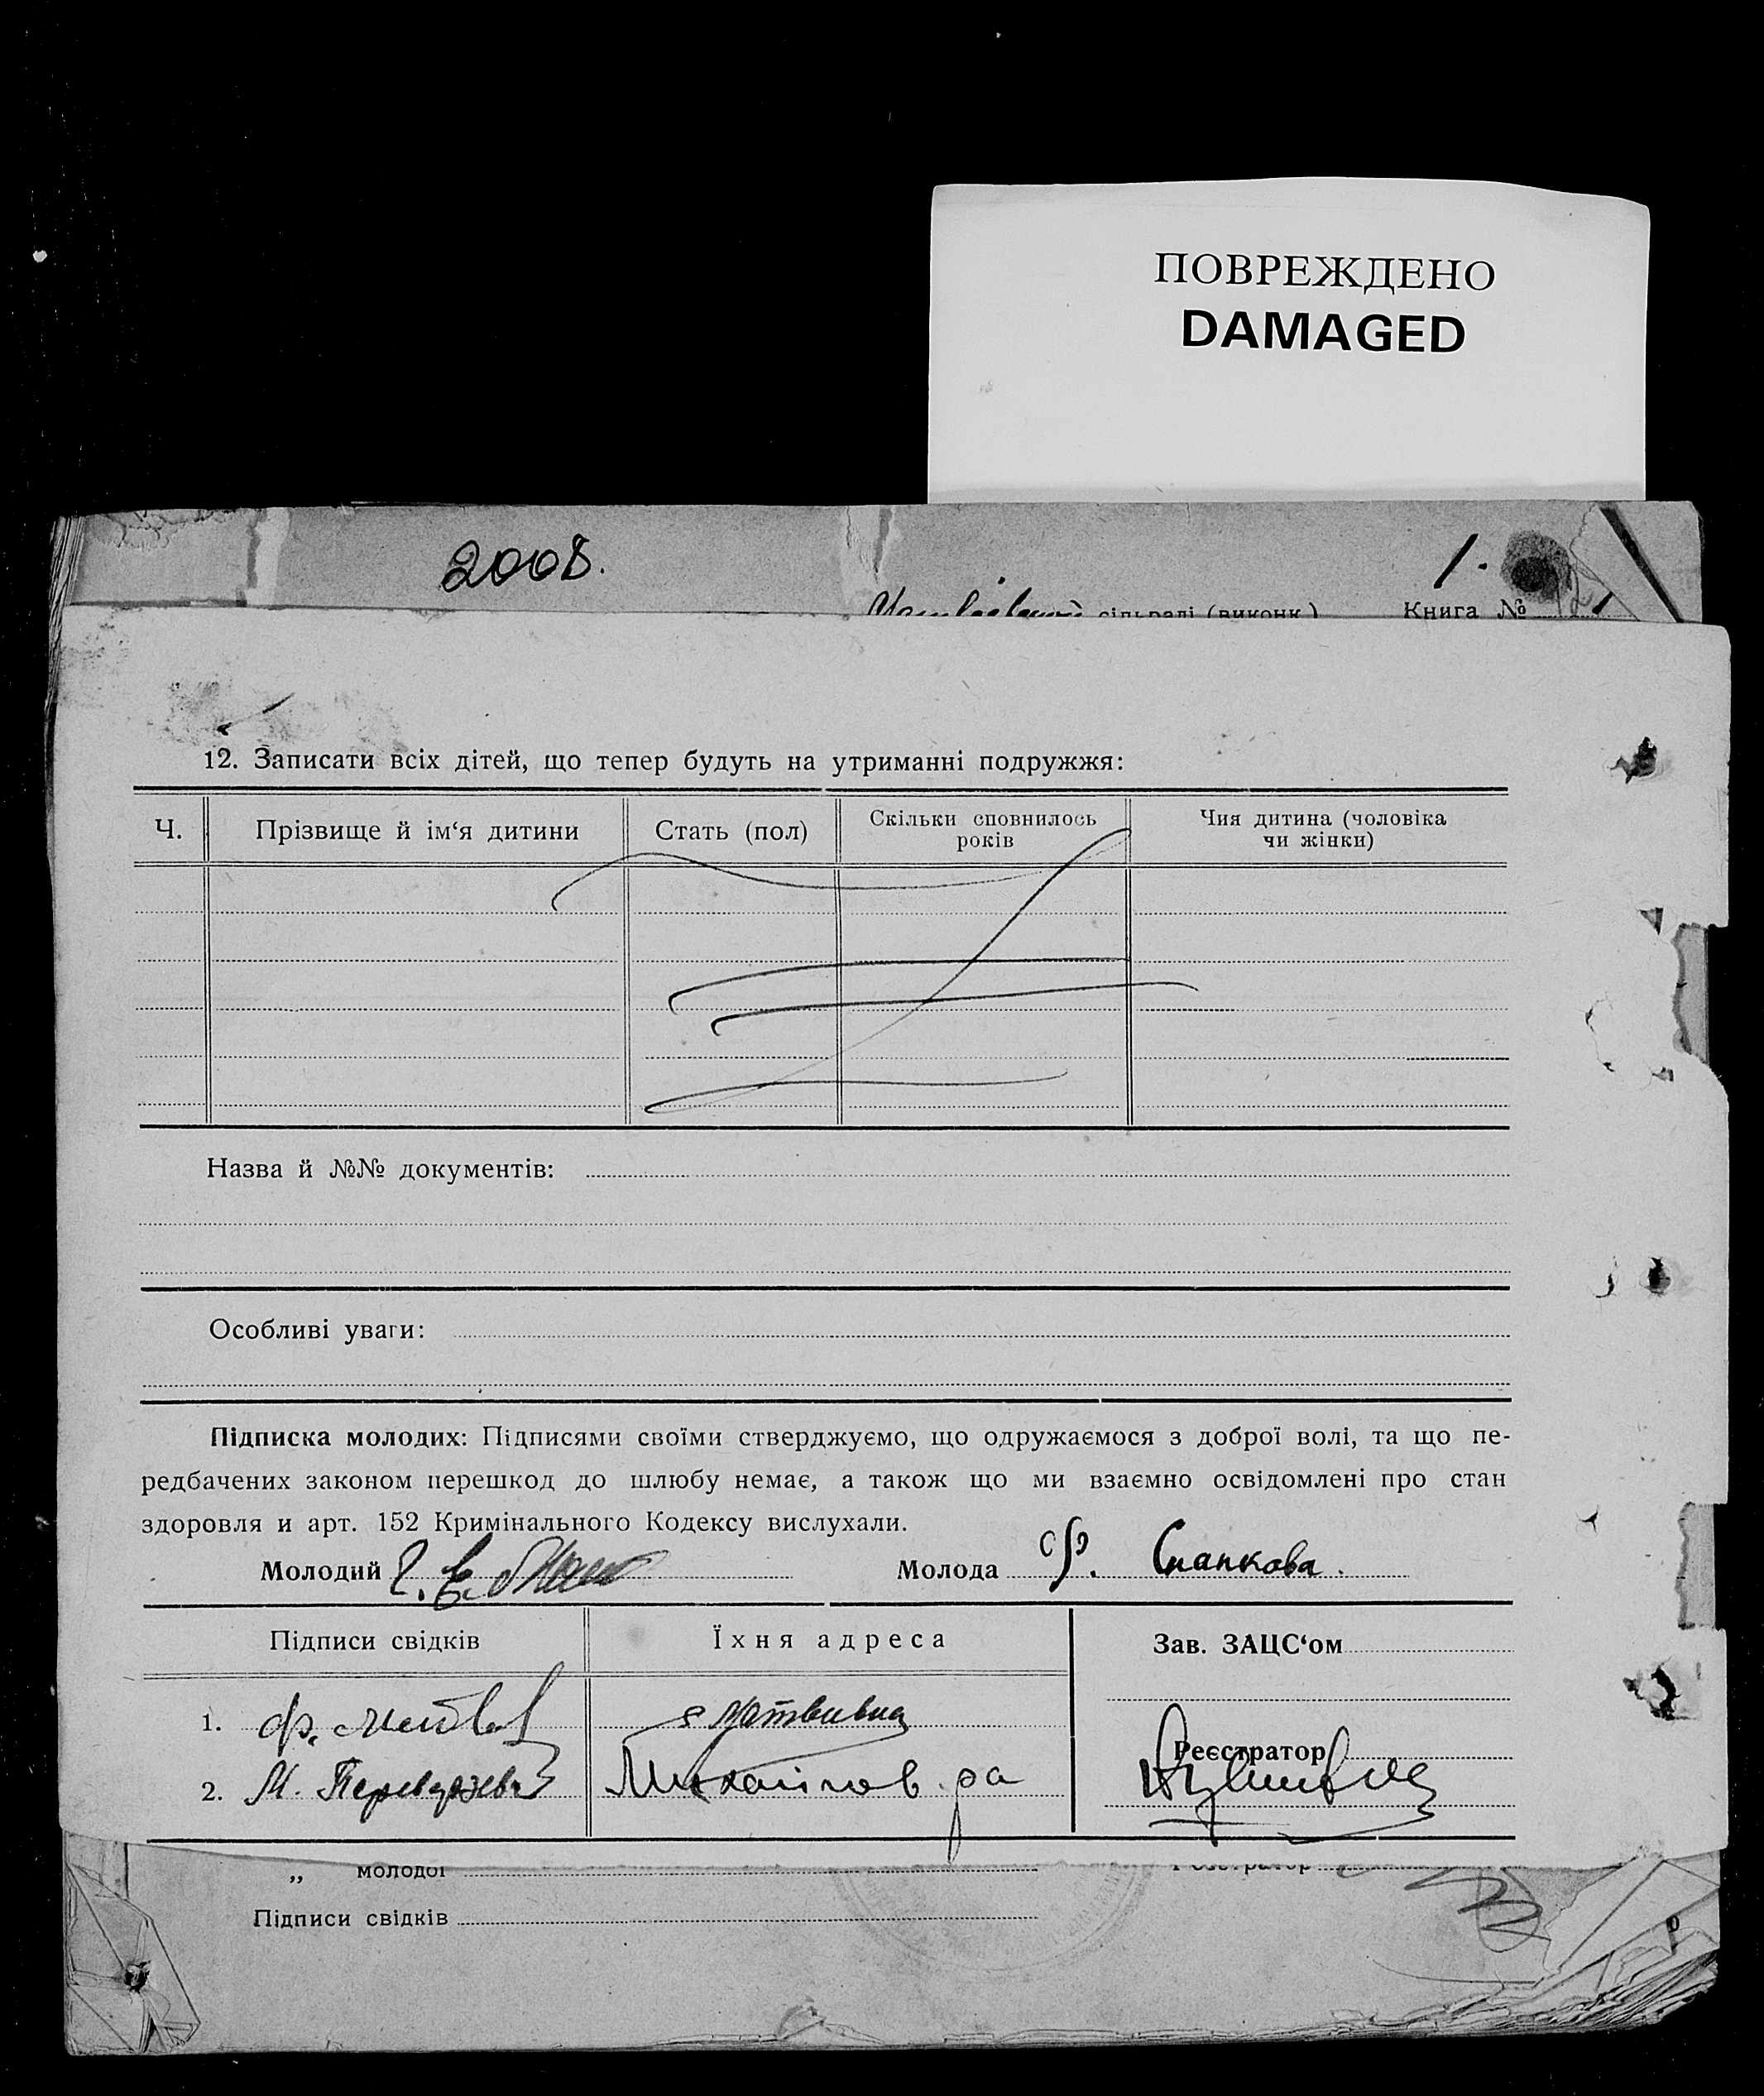 ПОВРЕЖДЕНО
DAMAGED
2008.
1.
сільраді (виконк.) Книга №
12. Записати всіх дітей, що тепер будуть на утриманні подружжя:
Ч. Прізвище й ім‘я дитини Стать (пол) Скільки сповнилось років Чия дитина (чоловіка чи жінки)
Назва й №№ документів:
Особливі уваги:
Підписка молодих: Підписями своїми стверджуємо, що одружаємося з доброї волі, та що пе-
редбачених законом перешкод до шлюбу немає, а також що ми взаємно освідомлені про стан
здоровля и арт. 152 Кримінального Кодексу вислухали.
Молодий Молода Ф. Спапкова.
Підписи свідків Їхня адреса Зав. ЗАЦС‘ом
1. Ф.
Реєстратор
2. М. ра
„ молодої Реєстратор
Підписи свідків